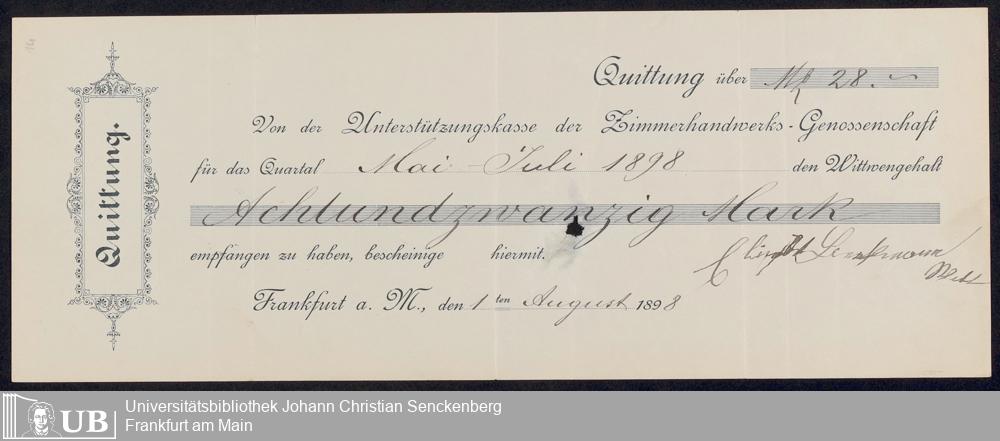 Quittung.
Quittung über Mk 28.
Von der Unterstützungskasse der Zimmerhandwerks-Genossenschaft
für das Quartal Mai - Juli 1898 den Wittwengehalt
Achtundzwanzig Mark
empfangen zu haben, bescheinige hiermit.
Frankfurt a. M., den 1ten August 1898
UB
Universitätsbibliothek Johann Christian Senckenberg
Frankfurt am Main